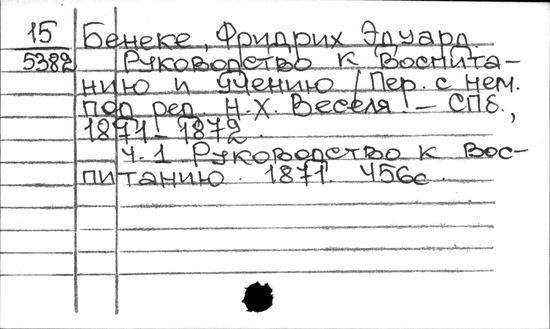 15 Бенеке, Фридрих Эдуард.
5382 Руководство к Воспита-
нию и учению / Пер. с нем.
под ред. Н.Х. Веселя. – СПб.,
1871-1872.
Ч.1 Руководство к вос-
питанию. 1871. 456с.